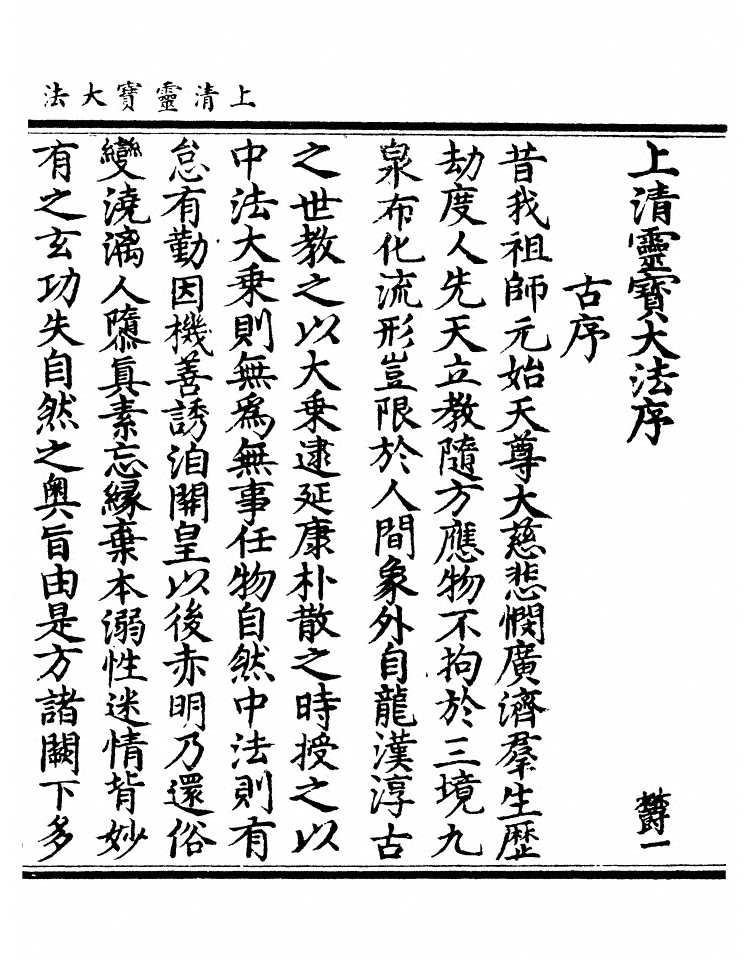 上清靈寶大法
上清靈寶大法序
欝一
古序
昔我祖師元始天尊大慈悲憫廣濟羣生歷
劫度人先天立教隨方應物不拘於三境九
泉布化流形豈限於人間象外自龍漢淳古
之世教之以大乘逮延康朴散之時授之以
中法大乘則無爲無事任物自然中法則有
怠有勤因機善誘洎開皇以後赤明乃還俗
變澆漓人隳眞素忘緣棄本溺性迷情背妙
有之玄功失自然之奧旨由是方諸闕下多